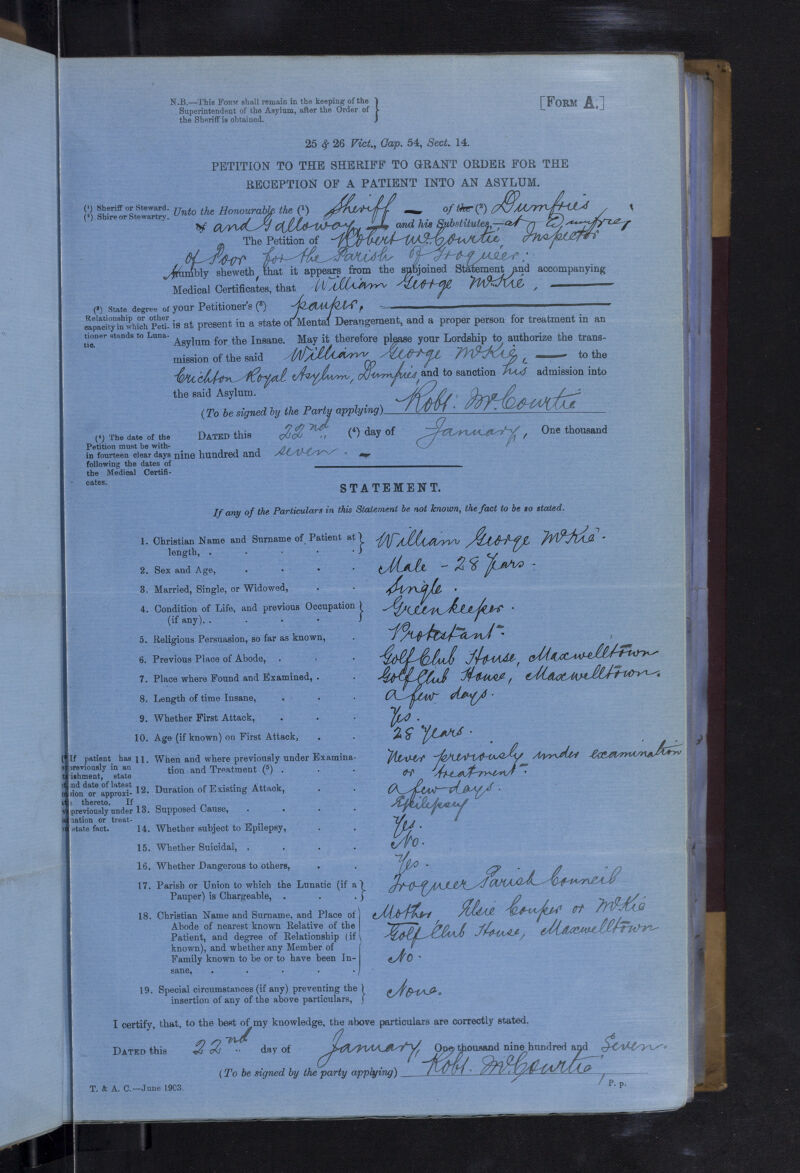 N.B.—This Form shall remain in the keeping of the
Superintendent of the Asylum, after the Order of
the Sheriff is obtained.
[Form A.]
25 & 26 Vict., Cap. 54, Sect. 14.
PETITION TO THE SHERIFF TO GRANT ORDER FOR THE
RECEPTION OF A PATIENT INTO AN ASYLUM.
(1) Sheriff or Steward.
(2) Shire or Stewartry.
Unto the Honourable the (1) Sheriff — of the (2) Dumfries
and Galloway, and his Substitutes, at Dumfries
The Petition of Robert McCourtie, Inspector
of Poor for the Parish of Troqueer:
Humbly sheweth, that it appears from the subjoined Statement and accompanying
Medical Certificates, that William George McKie,
(3) State degree of
Relationship or other
capacity in which Peti-
tioner stands to Luna-
tic.
your Petitioner's (3) pauper,
is at present in a state of Mental Derangement, and a proper person for treatment in an
Asylum for the Insane. May it therefore please your Lordship to authorize the trans-
mission of the said William George McKie, — to the
Crichton Royal Asylum, Dumfries, and to sanction his admission into
the said Asylum.
(To be signed by the Party applying) Robt. McCourtie
(4) The date of the
Petition must be with-
in fourteen clear days
following the dates of
the Medical Certifi-
cates.
Dated this 22nd (4) day of January, One thousand
nine hundred and seven.
STATEMENT.
If any of the Particulars in this Statement be not known, the fact to be so stated.
1. Christian Name and Surname of Patient at
length, . William George McKie.
2. Sex and Age, Male - 28 Years.
3. Married, Single, or Widowed, Single.
4. Condition of Life, and previous Occupation
(if any). Greenkeeper.
5. Religious Persuasion, so far as known, Protestant.
6. Previous Place of Abode, Golf Club House, Maxwelltown
7. Place where Found and Examined, Golf Club House, Maxwelltown.
8. Length of time Insane, A few days.
9. Whether First Attack, Yes.
10. Age (if known) on First Attack, 28 Years.
If patient has
previously in an
ishment, state
nd date of latest
ion or approxi-
thereto. If
previously under
nation or treat-
state fact.
11. When and where previously under Examina-
tion and Treatment (5) Never previously under examination
or treatment.
12. Duration of Existing Attack, A few days.
13. Supposed Cause, Epilepsy
14. Whether subject to Epilepsy, Yes.
15. Whether Suicidal, No.
16. Whether Dangerous to others, Yes.
17. Parish or Union to which the Lunatic (if a
Pauper) is Chargeable, Troqueer Parish Council
18. Christian Name and Surname, and Place of
Abode of nearest known Relative of the
Patient, and degree of Relationship (if
known), and whether any Member of
Family known to be or to have been In-
sane, Mother, Elsie Couper or McKie
Golf Club House, Maxwelltown
No.
19. Special circumstances (if any) preventing the
insertion of any of the above particulars, None.
I certify, that, to the best of my knowledge, the above particulars are correctly stated.
Dated this 22nd day of January, One thousand nine hundred and Seven.
(To be signed by the party applying) Robt. McCourtie
T. & A. C.—June 1903.
P. p.